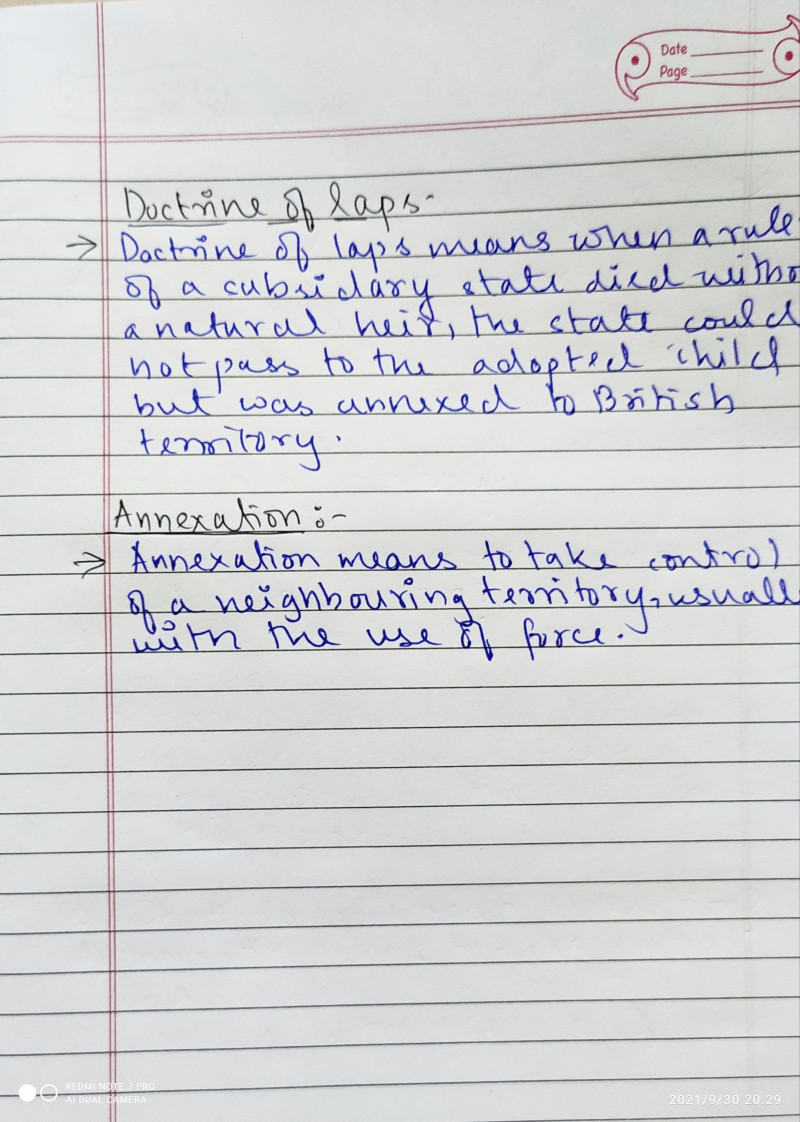 Date
Page
Doctrine of laps-
→ Doctrine of laps means when a rule
of a cubsidary state died witho
a natural heir, the state could
not pass to the adopted child
but was annexed to British
territory.
Annexation :-
→ Annexation means to take control
of a neighbouring territory, usuall
with the use of force.
REDMI NOTE 7 PRO
AI DUAL CAMERA
2021/9/30 20:29